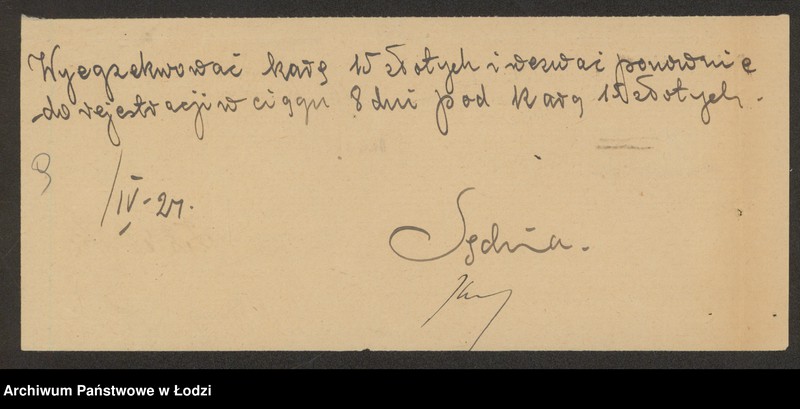 Wyegzekwować karę 15 złotych i wezwać ponownie
do rejestracji w ciągu 8 dni pod karą 15 złotych.
9/IV-27.
Sędzia.
Archiwum Państwowe w Łodzi